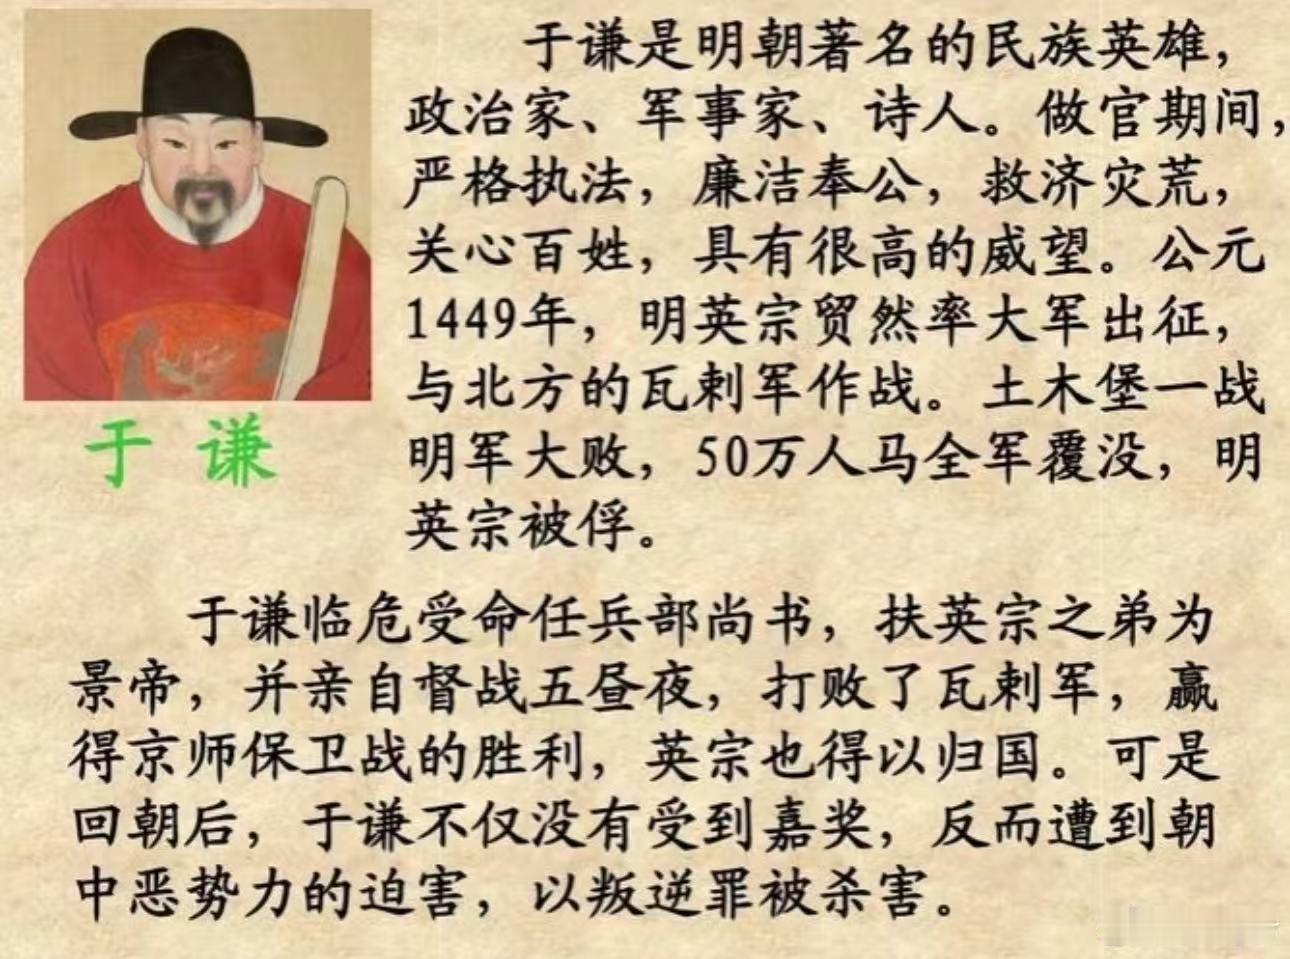 于谦是明朝著名的民族英雄，
政治家、军事家、诗人。做官期间，
严格执法，廉洁奉公，救济灾荒，
关心百姓，具有很高的威望。公元
1449年，明英宗贸然率大军出征，
与北方的瓦剌军作战。土木堡一战
明军大败，50万人马全军覆没，明
英宗被俘。
于谦
于谦临危受命任兵部尚书，扶英宗之弟为
景帝，并亲自督战五昼夜，打败了瓦剌军，赢
得京师保卫战的胜利，英宗也得以归国。可是
回朝后，于谦不仅没有受到嘉奖，反而遭到朝
中恶势力的迫害，以叛逆罪被杀害。